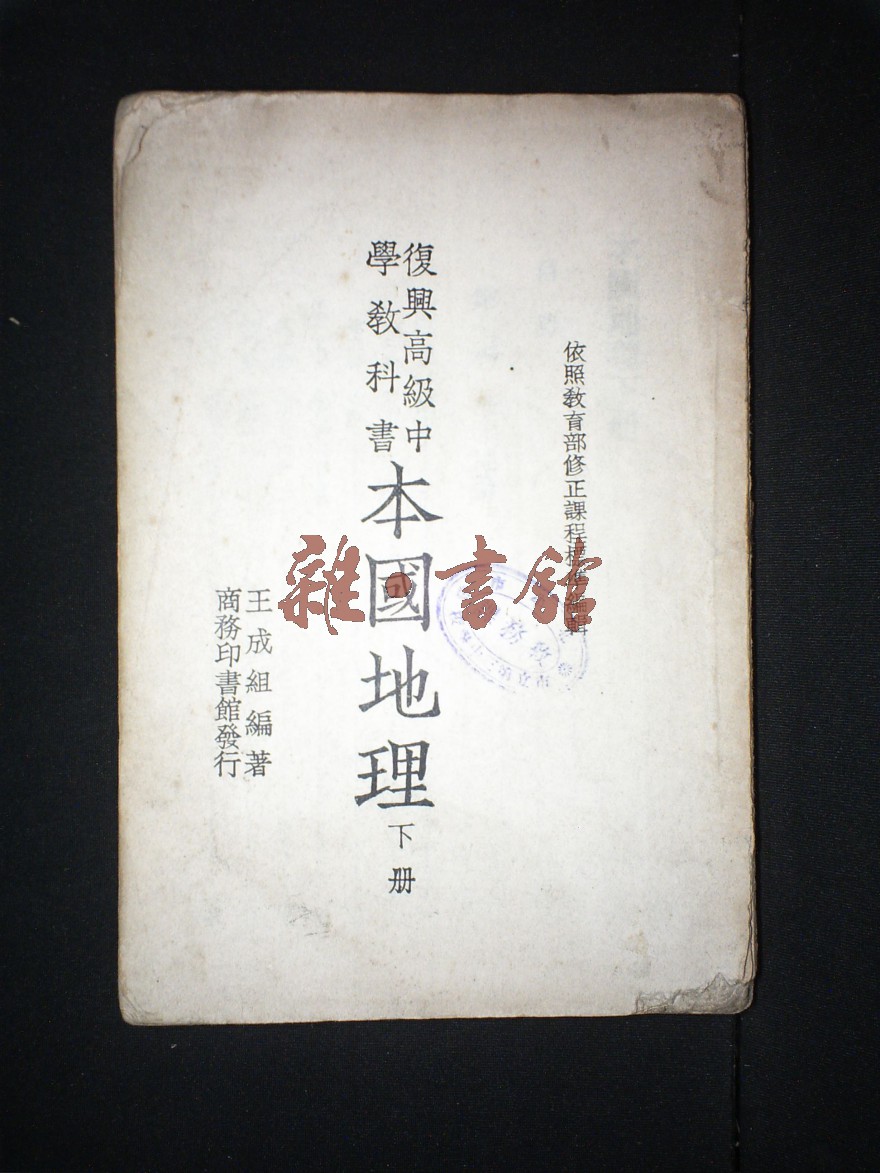 依照教育部修正課程標準編輯
復興高級中
學教科書
本國地理
下册
王成組編著
商務印書館發行
雜書館